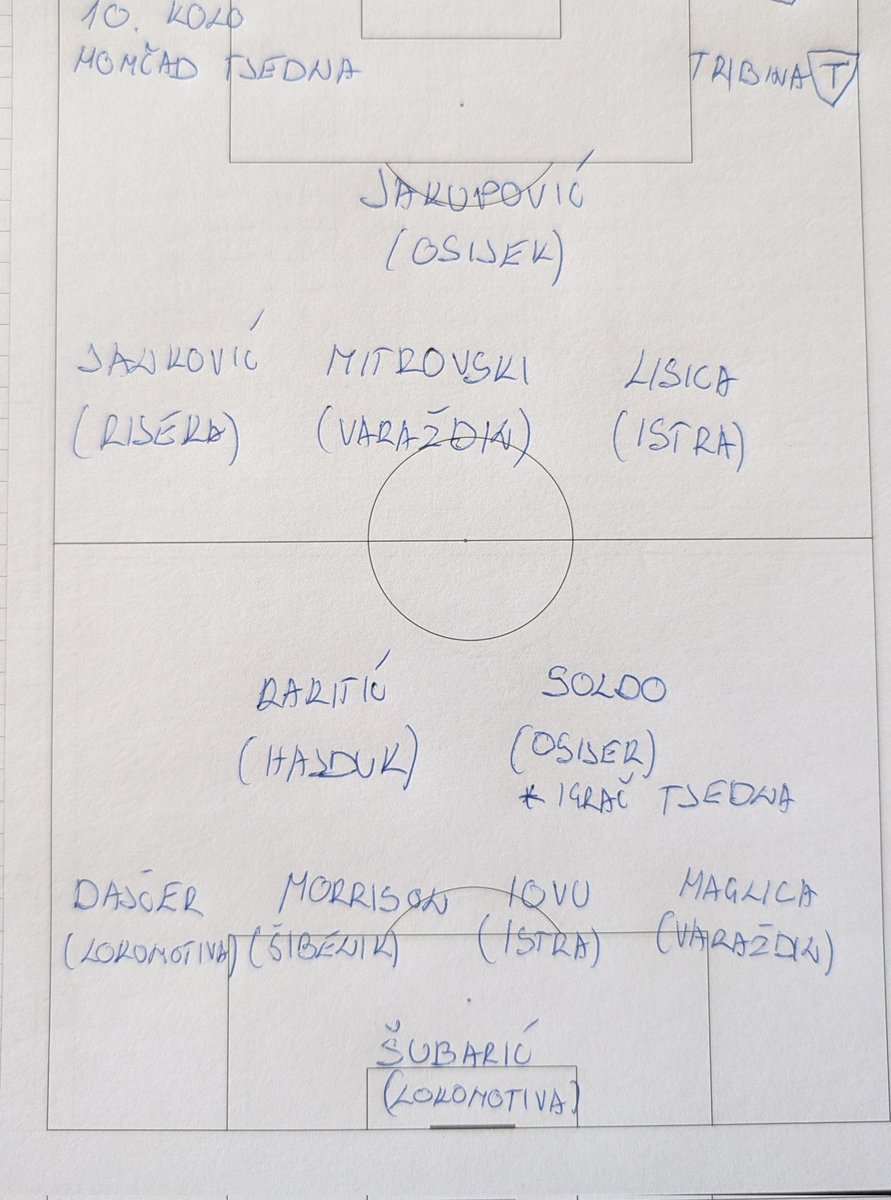 10. KOLO
MOMČAD TJEDNA
TRIBINA T
JAKUPOVIĆ
(OSIJEK)
JANKOVIĆ MITROVSKI LISICA
(RIJEKA) (VARAŽDIN) (ISTRA)
RAKITIĆ SOLDO
(HAJDUK) (OSIJEK)
* IGRAČ TJEDNA
DAJČER MORRISON IOVU MAGLICA
(LOKOMOTIVA) (ŠIBENIK) (ISTRA) (VARAŽDIN)
ŠUBARIĆ
(LOKOMOTIVA)